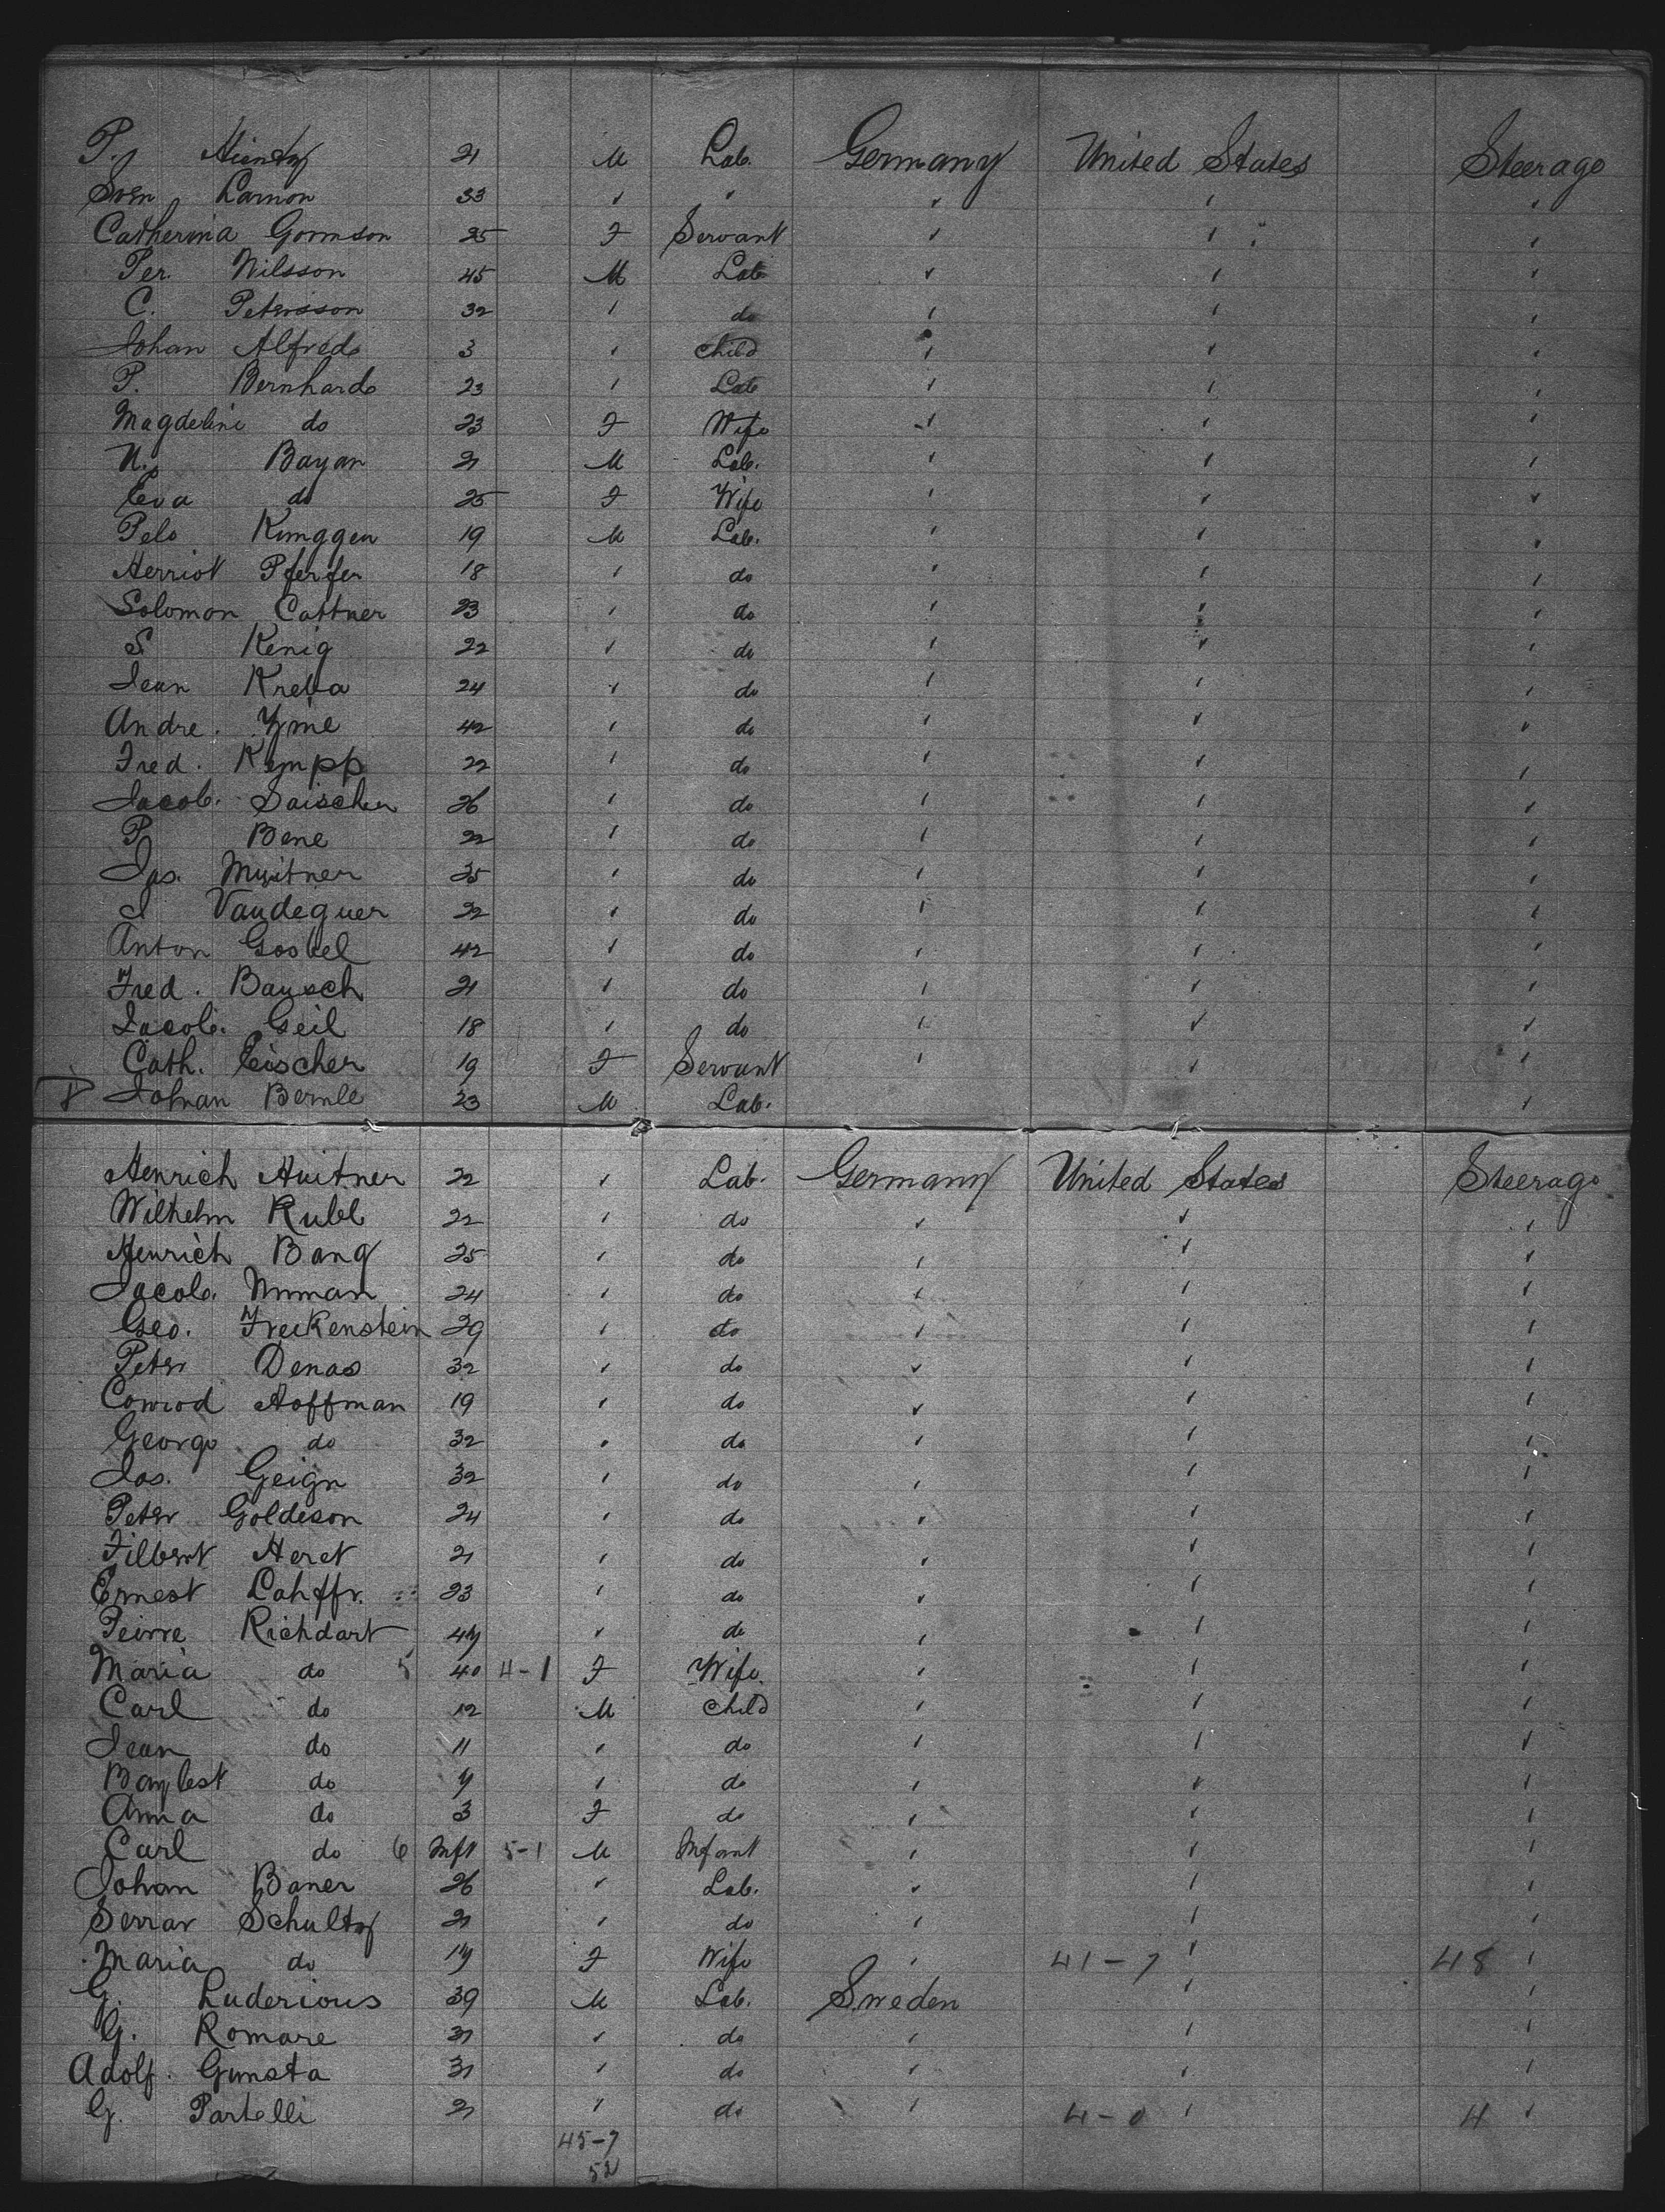 P. 21 M Lab. Germany United States Steerage
Sven Larnon 33 " " " " "
Catherina Gormson 25 F Servant " " "
Per. Nilsson 45 M Lab " " "
C. Petersson 32 " do " " "
Johan Alfreds 3 " Child " " "
P. Bernhards 23 " Lab " " "
Magdeleni do 23 F Wife " " "
N. Bayan 21 M Lab. " " "
Eva do 25 F Wife " " "
Pelo Kunggen 19 M Lab. " " "
Herriot Pferfer 18 " do " " "
Solomon Cattner 23 " do " " "
S. Kenig 22 " do " " "
Jean Kreba 24 " do " " "
Andre. Yme 42 " do " " "
Fred. Kempp 22 " do " " "
Jacob. Saischer 26 " do " " "
P. Bene 22 " do " " "
Jas. Muitner 35 " do " " "
J Vandeguer 22 " do " " "
Anton Goobel 42 " do " " "
Fred. Bausch 21 " do " " "
Jacob. Geil 18 " do " " "
Cath. Eischer 19 F Servant " " "
Johnan Bernle 23 M Lab. "
Henrich Huitner 22 " Lab. Germany United States Steerage
Wilhelm Rubb 22 " do " " "
Henrich Bang 25 " do " " "
Jacob. Numan 24 " do " " "
Geo. Freckenstein 39 " do " " "
Peter Denas 32 " do " " "
Conrod Hoffman 19 " do " " "
George do 32 " do " " "
Jos. Geign 32 " do " " "
Peter Goldeson 24 " do " " "
Filbert Herct 21 " do " " "
Ernest Lahffr. 23 " do " " "
Peirre Richdart 47 " do " " "
Maria do 5 40 4-1 F Wife. " " "
Carl do 12 M Child " " "
Jean do 11 " do " " "
Baylest do 7 " do " " "
Anna do 3 F do " " "
Carl do 6 Inft 5-1 M Infant " " "
Johan Baner 26 " Lab. " " "
Serrar Schultz 21 " do " " "
Maria do 17 F Wife " 41-7 " 48 "
G. Luderious 39 M Lab. Sweden " "
G. Romare 31 " do " " "
Adolf. Gunsta 31 " do " " "
G. Partelli 21 " do " 4-0 " 4 "
45-7
52